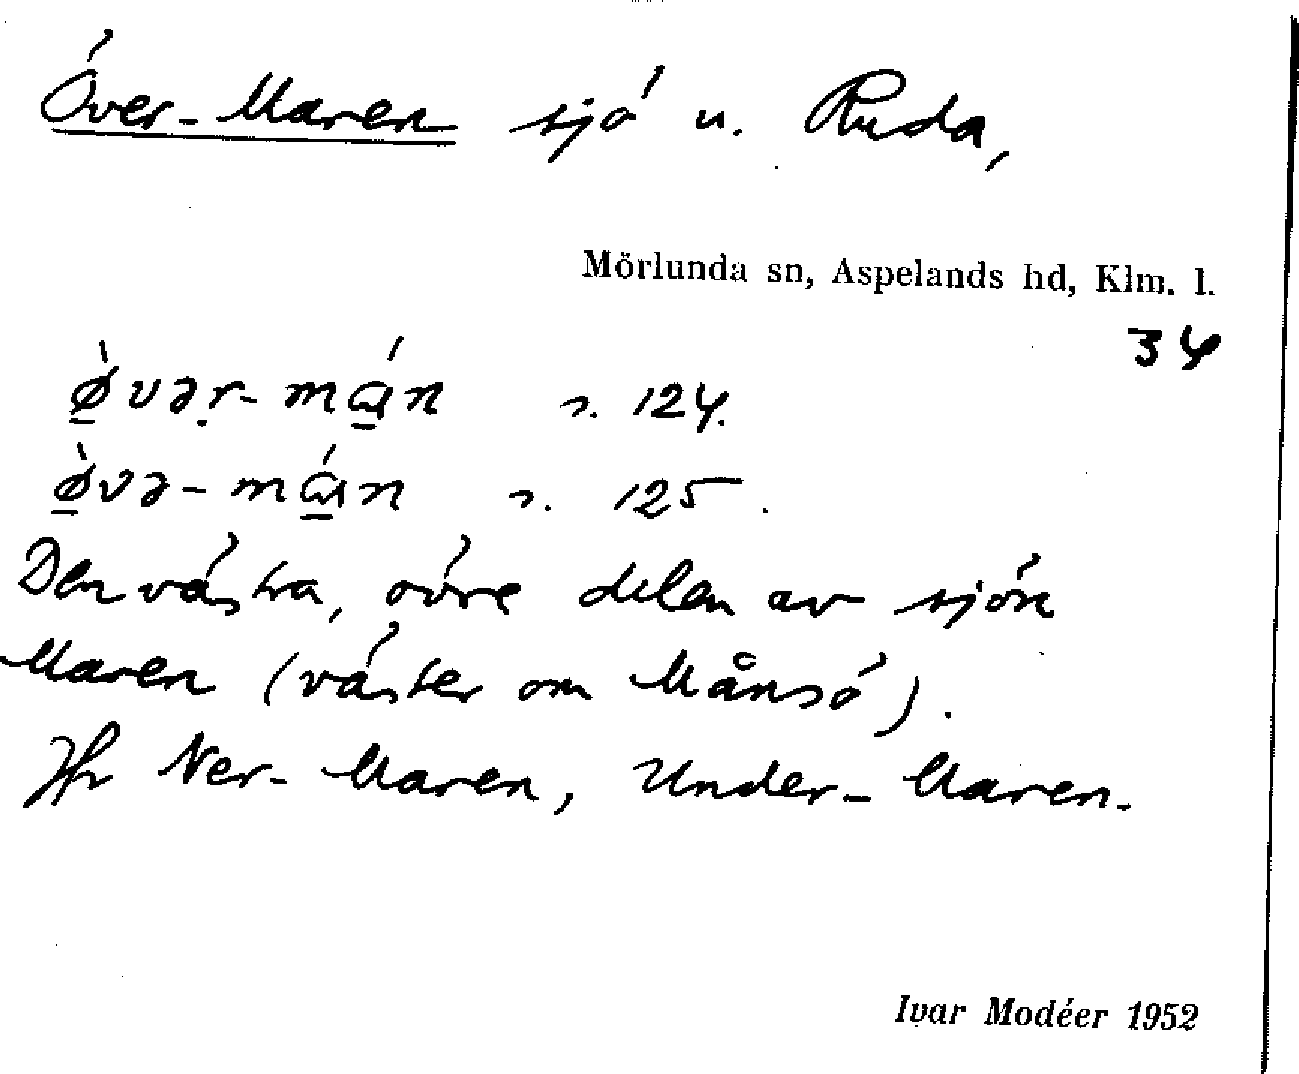 Över-Maren sjö u. Ruda,
Mörlunda sn, Aspelands hd, Klm. l.
34
ø̱̀vəṛ-mɑ̱́n s. 124.
ø̱̀və-mɑ̱́n s. 125.
Den västra, övre delen av sjön
Maren (väster om Månsö).
Jfr Ner-Maren, Under-Maren.
Ivar Modéer 1952